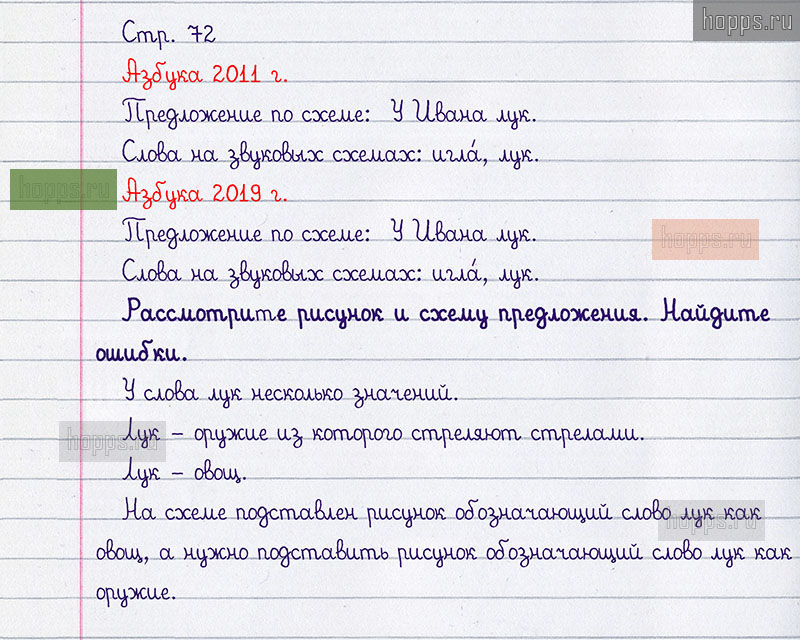 hopps.ru
Стр. 72
Азбука 2011 г.
Предложение по схеме: У Ивана лук.
Слова на звуковых схемах: игла́, лук.
hopps.ru
Азбука 2019 г.
Предложение по схеме: У Ивана лук.
hopps.ru
Слова на звуковых схемах: игла́, лук.
Рассмотрите рисунок и схему предложения. Найдите
ошибки.
У слова лук несколько значений.
Лук – оружие из которого стреляют стрелами.
hopps.ru
Лук – овощ.
На схеме подставлен рисунок обозначающий слово лук как
hopps.ru
овощ, а нужно подставить рисунок обозначающий слово лук как
оружие.